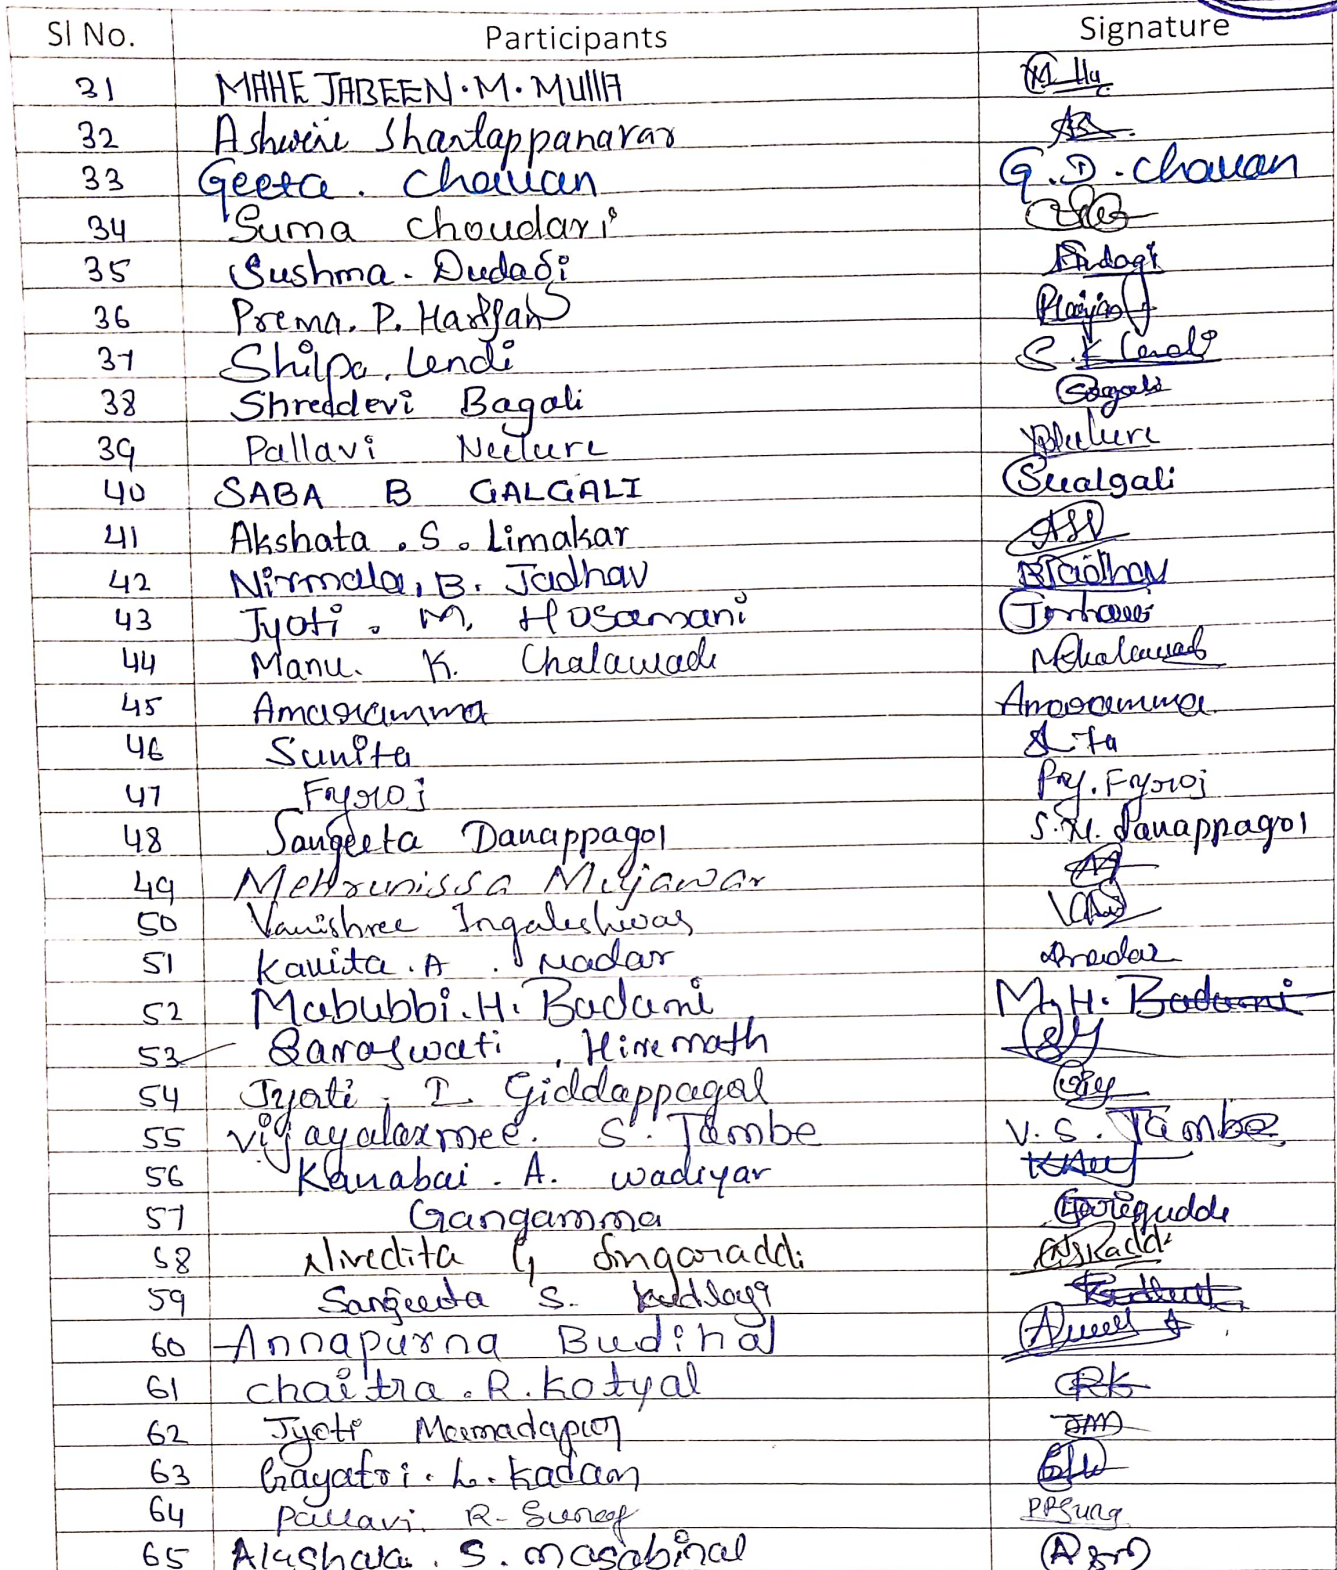 Sl No. Participants Signature
31 MAHEJABEEN.M.MUllA
32 Ashwini Shantappanavar
33 Geeta. Chauan G.D.Chauan
34 Suma Choudari
35 Sushma. Dudagi
36 Prema. P. Harijan
37 Shilpa. Lendi S.K Lendi
38 Shreddevi Bagali Bagali
39 Pallavi Neelure
40 SABA B GALGALI
41 Akshata . S . Limakar
42 Nirmala, B. Jadhav BJadhav
43 Jyoti . M. Hosamani
44 Manu. K. Chalawadi
45 Amaramma Amaramma
46 Sunita
47 Fyroj Fy. Fyroj
48 Sangeeta Danappagol S.M. Danappagol
49 Mehrunissa Mujawar
50 Vanishree Ingaleshwar
51 Kavita .A . Madar
52 Mabubbi.H. Badami M.H. Badami
53 Saraswati . Hiremath
54 Jyoti . I. Giddappagol
55 Vijayalaxmee. S. Tambe V. S. Tambe
56 Kanabai . A. wadiyar
57 Gangamma
58 Nivedita G Singaraddi
59 Sangeeta S. Kudlagi
60 Annapurna Budihal
61 Chaitra .R.Kotyal CRK
62 Jyoti Mamadapur JMM
63 Gayatri. L. Kadam
64 Pallavi. R-
65 S. Masabinal